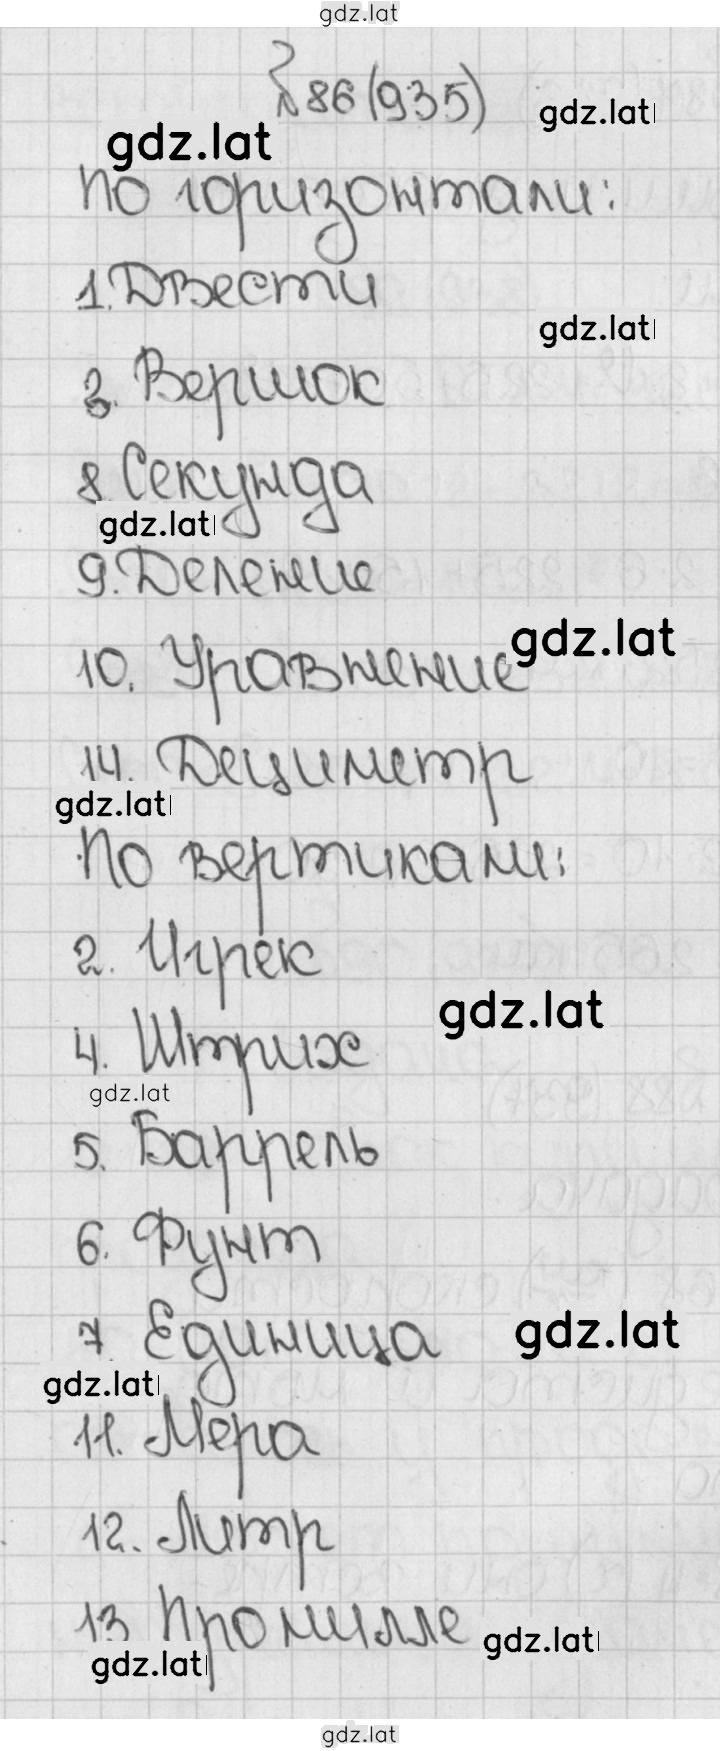 gdz.lat
№86 (935)
gdz.lat
gdz.lat
По горизонтали:
1. Двести
gdz.lat
3. Вершок
8 Секунда
gdz.lat
9. Деление
gdz.lat
10. Уравнение
14. Дециметр
gdz.lat
По вертикали:
2. Игрек
gdz.lat
4. Штрих
gdz.lat
5. Баррель
6. Фунт
7 Единица
gdz.lat
gdz.lat
11. Мера
12. Литр
13 Промилле
gdz.lat
gdz.lat
gdz.lat